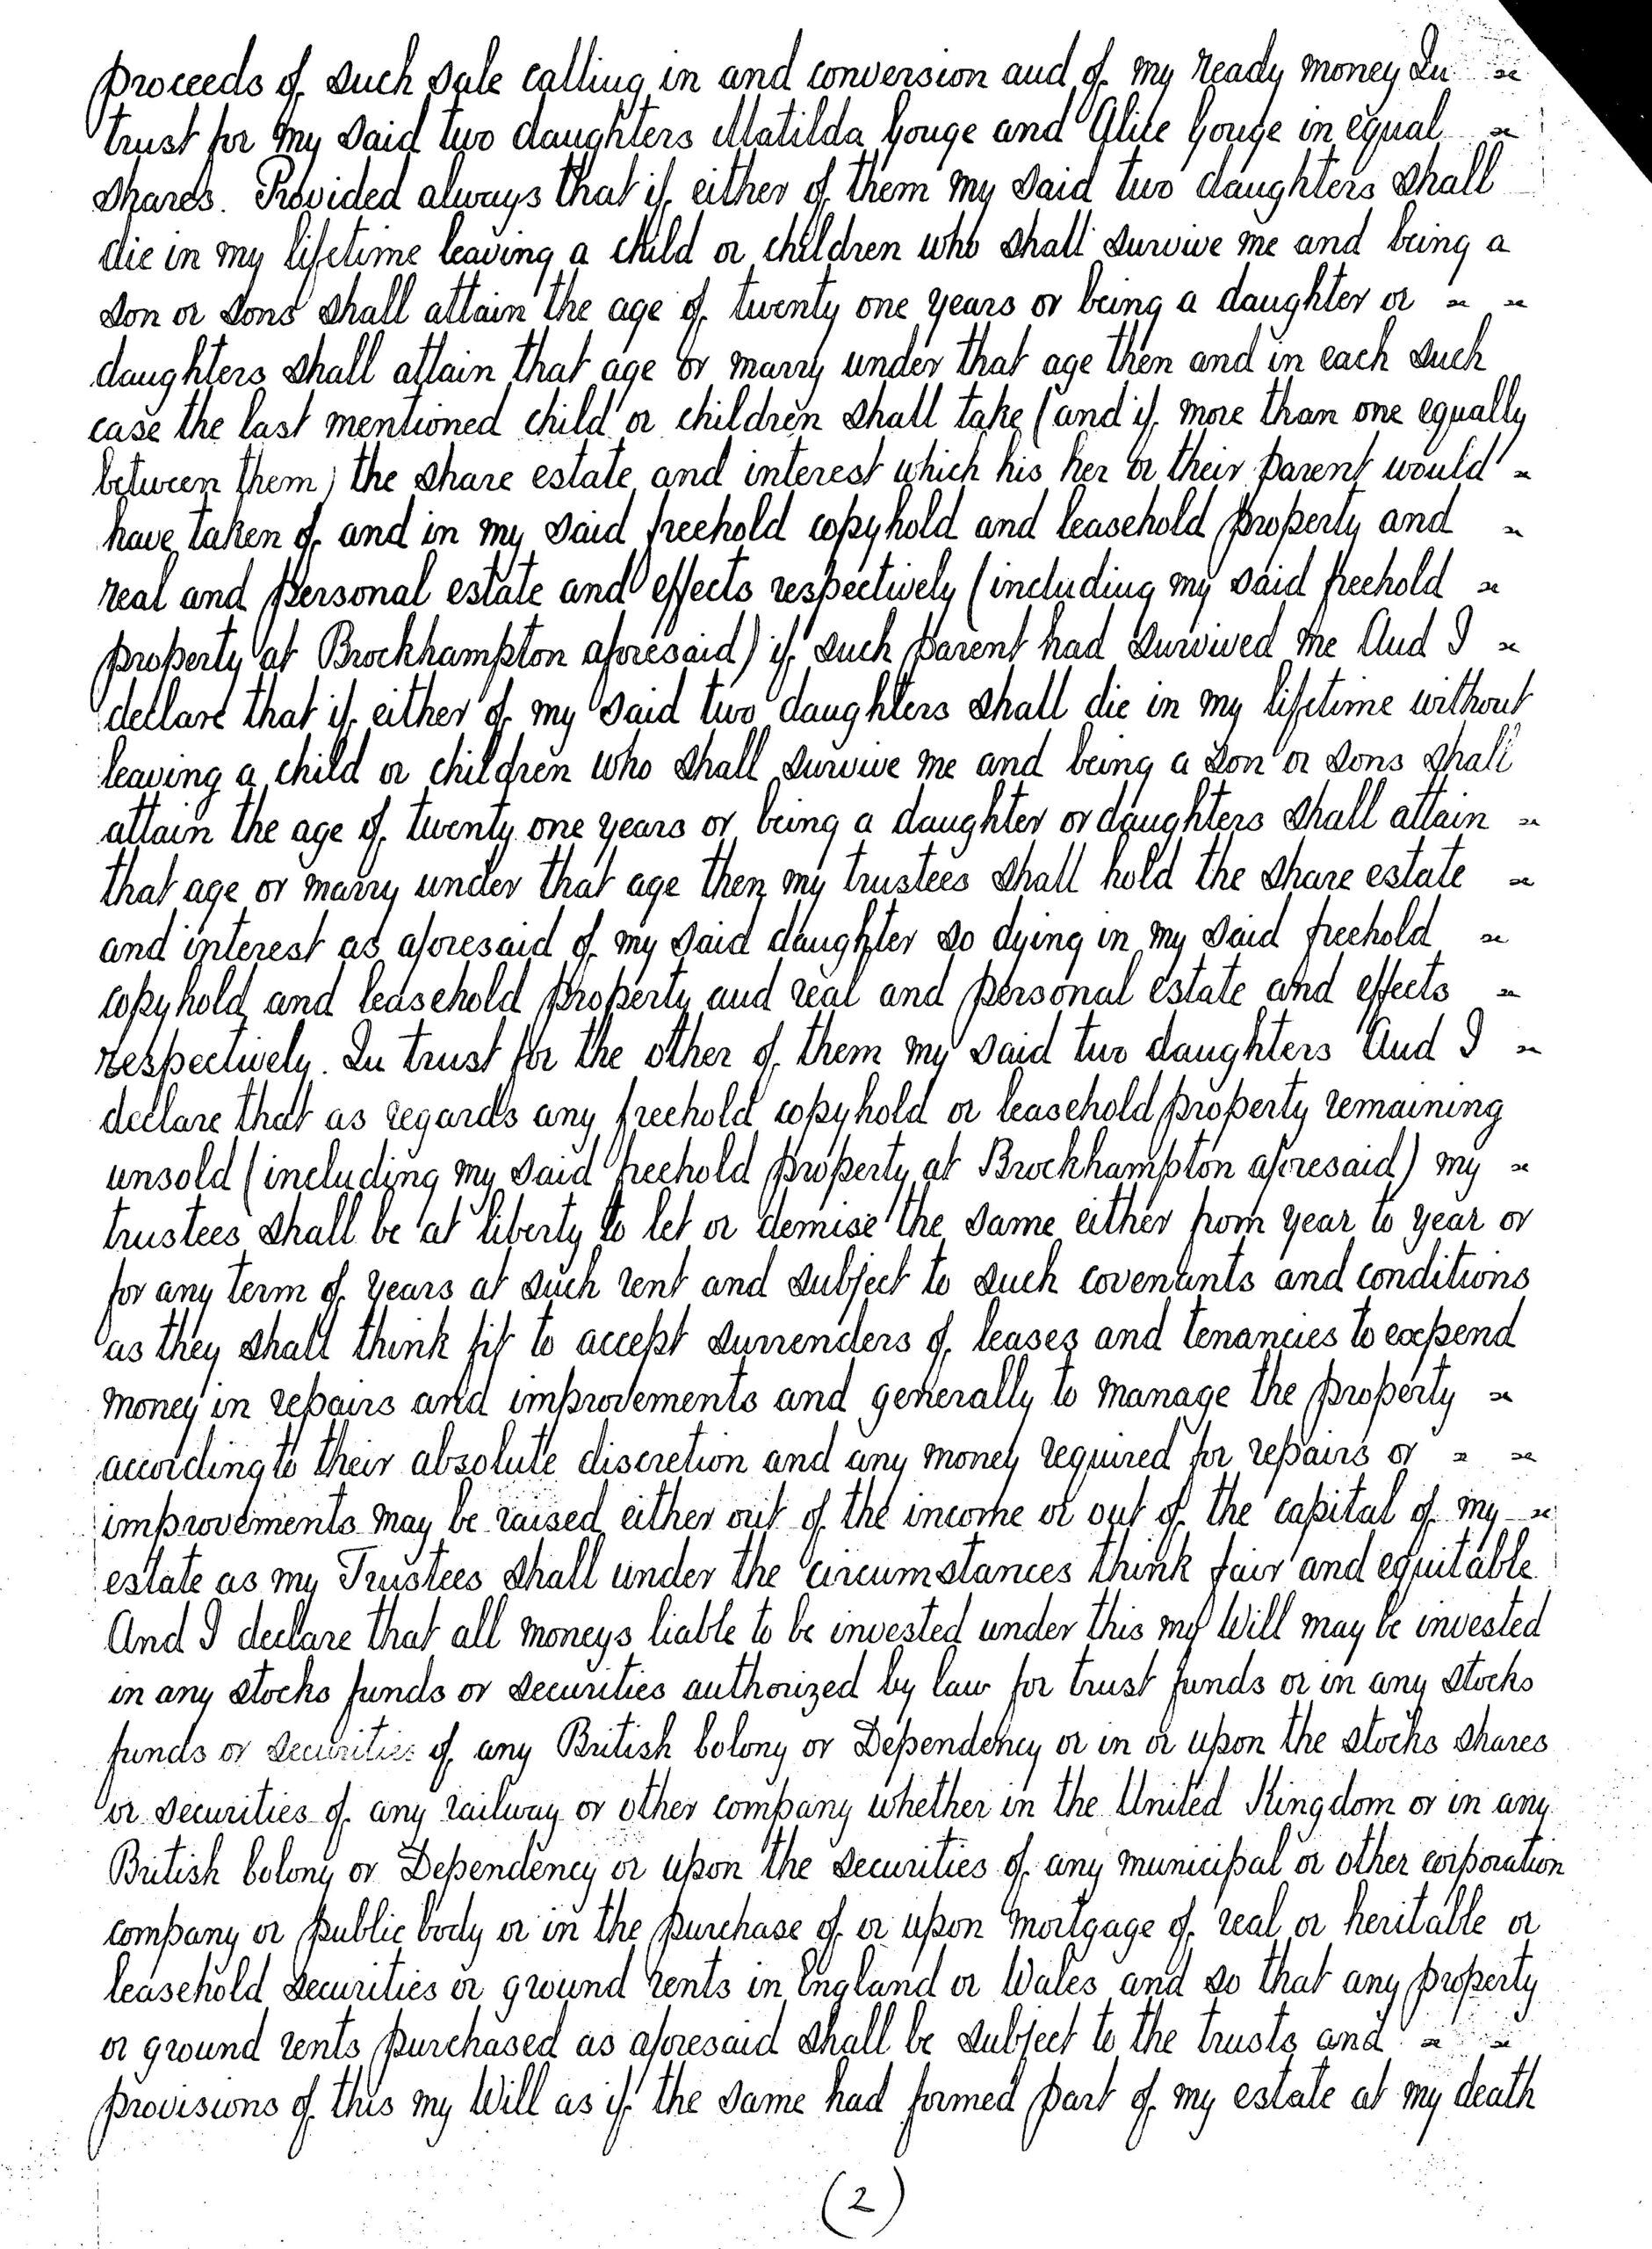 proceeds of such sale calling in and conversion and of my ready money In
trust for my said two daughters Matilda Gouge and Alice Gouge in equal
shares. Provided always that if either of them my said two daughters shall
die in my lifetime leaving a child or children who shall survive me and being a
son or sons shall attain the age of twenty one years or being a daughter or
daughters shall attain that age or marry under that age then and in each such
case the last mentioned child or children shall take (and if more than one equally
between them) the share estate and interest which his her or their parent would
have taken of and in my said freehold copyhold and leasehold property and
real and personal estate and effects respectively (including my said freehold
property at Brockhampton aforesaid) if such parent had survived me And I
declare that if either of my said two daughters shall die in my lifetime without
leaving a child or children who shall survive me and being a son or sons shall
attain the age of twenty one years or being a daughter or daughters shall attain
that age or marry under that age then my trustees shall hold the share estate
and interest as aforesaid of my said daughter so dying in my said freehold
copyhold and leasehold property and real and personal estate and effects
respectively. In trust for the other of them my said two daughters And I
declare that as regards any freehold copyhold or leasehold property remaining
unsold (including my said freehold property at Brockhampton aforesaid) my
trustees shall be at liberty to let or demise the same either from year to year or
for any term of years at such rent and subject to such covenants and conditions
as they shall think fit to accept surrenders of leases and tenancies to expend
money in repairs and improvements and generally to manage the property
according to their absolute discretion and any money required for repairs or
improvements may be raised either out of the income or out of the capital of my
estate as my Trustees shall under the circumstances think fair and equitable
And I declare that all moneys liable to be invested under this my Will may be invested
in any stocks funds or securities authorized by law for trust funds or in any stocks
funds or securities of any British Colony or Dependency or in or upon the stocks shares
or securities of any railway or other company whether in the United Kingdom or in any
British Colony or Dependency or upon the securities of any municipal or other corporation
company or public body or in the purchase of or upon mortgage of real or heritable or
leasehold securities or ground rents in England or Wales and so that any property
or ground rents purchased as aforesaid shall be subject to the trusts and
provisions of this my Will as if the same had formed part of my estate at my death
(2)